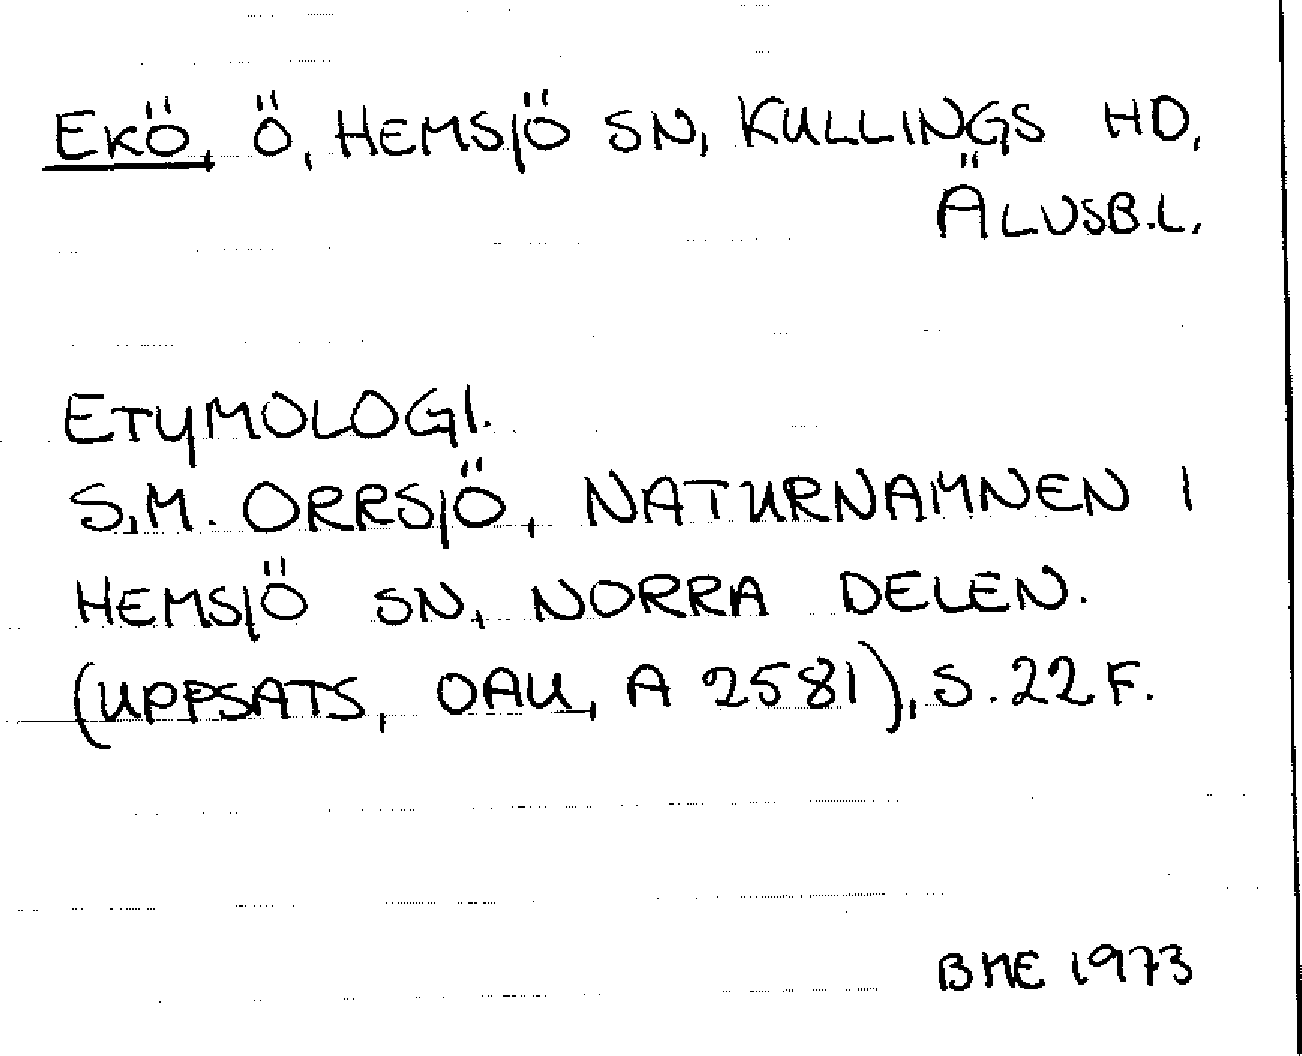 EKÖ, Ö, HEMSJÖ SN, KULLINGS HD,
ÄLVSB.L.
ETYMOLOGI.
S.M. ORRSJÖ, NATURNAMNEN I
HEMSJÖ SN, NORRA DELEN.
(UPPSATS, OAU, A 2581), S. 22 F.
BME 1973